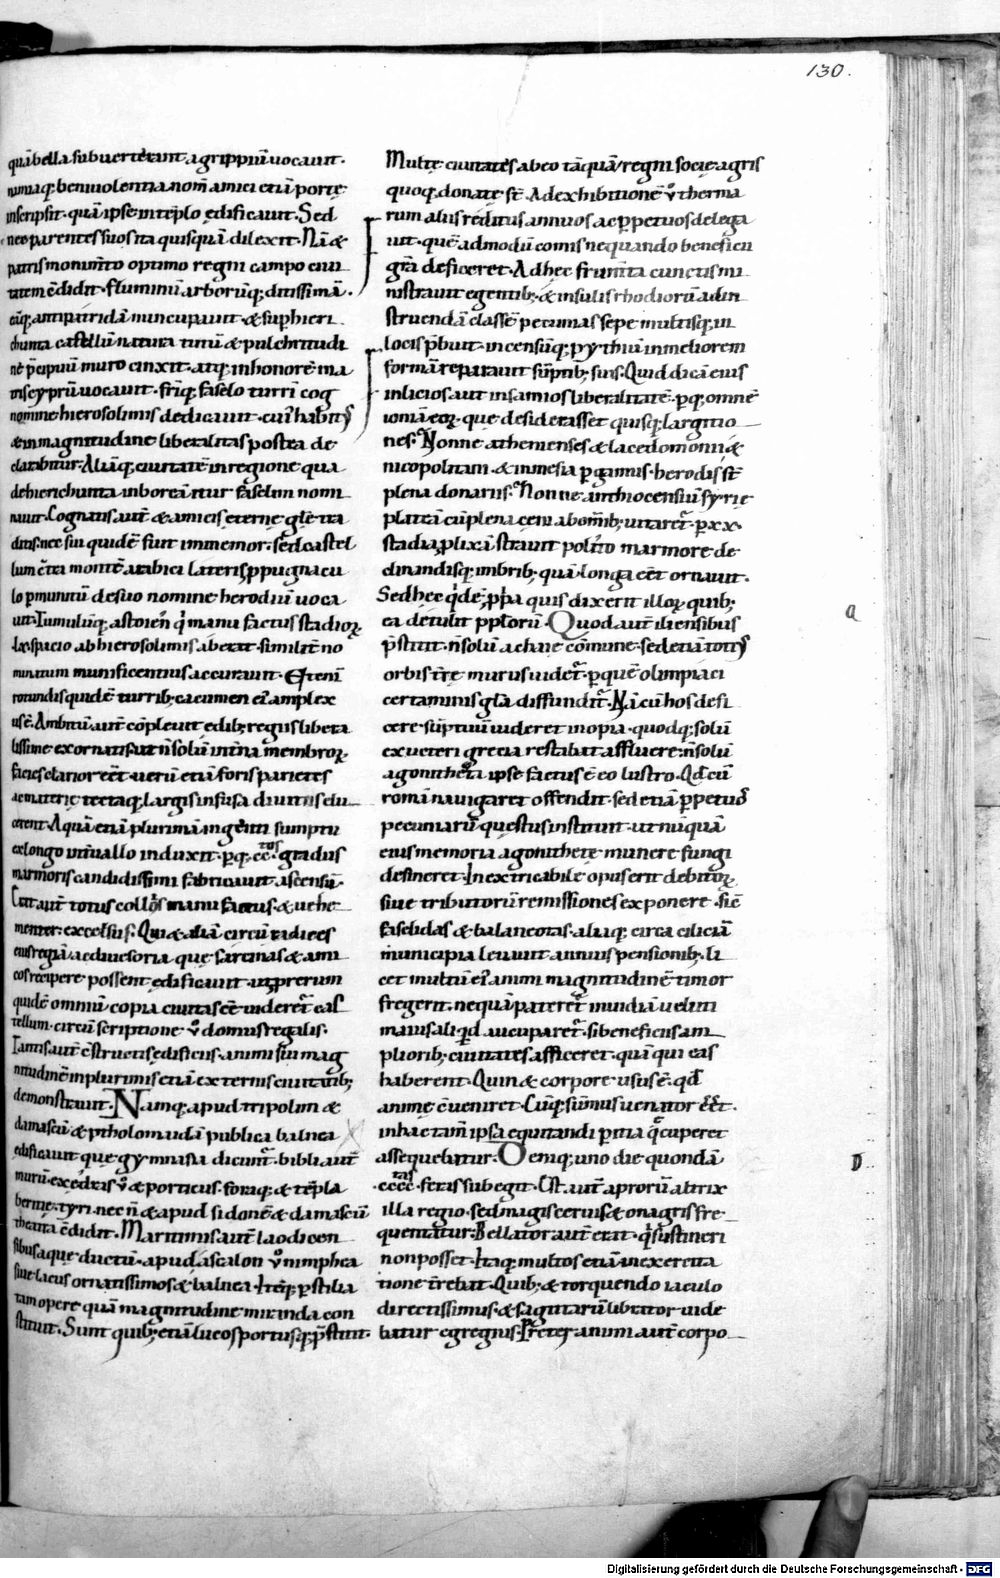 130.
quā bella subuerterant agrippiū uocauit.
nimiaq; beniuolentia nom̄ amici etiā porte
inscripsit. quā ipse in tēplo edificauit. Sed
nec parentes suos ita quisquā dilexit. Nā &
patris monum̄to optimo regni campo ciui
tatem c̄didit. fluminū arborūq; ditissimā.
eāq; antipatridā nuncupauit. & sup hieri
chunta castellū natura tutū & pulchritudi
ne p̄cipuū muro cinxit. atq; in honorē ma
tris cyprū uocauit. frīq; faselo turrī cog
nomine hierosolimis dedicauit. cui' habit'
& in magnitudine liberalitas postea de
clarabitur. Aliāq; ciuitatē in regione qua
de hierichunta in boreā itur faselim nomi
nauit. Cognatis aut̄ & amicis eterne gl̄e tra
ditis. nec sui quidē fuit immemor. sed castel
lum c̄tra montē arabici lateris ppugnacu
lo p̄munitū de suo nomine herodiū uoca
uit. Tumulūq; a stoien̄ q̇ manu factus stadioꝝ
.lx. spacio ab hierosolimis aberat. similit̄ no
minatum munificentius accurauit. Eteni
rotundis quidē turrib; cacumen ei' amplex
us ē. Ambitū aut̄ cōpleuit edib; regiis liberta
lissime exornatis. ut n̄ solū int̄na membroꝝ
facies clarior eēt. uerū etiā foris parietes
ac materie tectaq; largis infusa diuitiis elu
cerent. Aquā etiā plurimā ingenti sumptu
ex longo int̄uallo induxit. pq; cc.tos gradus
marmoris candidissimi fabricauit ascensū.
Erat aut̄ totus collis manu factus. & uehe
menter. excelsus. Qui & aliā circū radices
eius regiā. ac diuersoria. que sarcinas & ami
cos recipere possent. edificauit. ut p rerum
quidē omniū copia ciuitas eē uideret̄. cas
tellum. circū scriptione u̇ domus regalis.
Tantis aut̄ c̄structis edificiis. animi sui mag
nitudinē in plurimis etiā externis ciuitatib;
demonstrauit. Namq; apud tripolim &
damascū & ptholomaidā publica balnea
edificauit que gymnasia dicunt̄. bibli aut̄
murū. exedras u̇ & porticus. foraq; & tēpla
beritie. tyri. nec n̄ & apud sidonē & damascū
theatra c̄didit. Maritimis aut̄ laodicen
sibus aque ductū. apud áscalon u̇ nimphea
siue lacus ornatissimos & balnea. Itēq; pstilia
tam opere quā magnitudine miranda con
stituit. Sunt quib; etiā lucos portusq; p̄stitit.
Multe ciuitates ab eo tāquā regni socie. agris
quoq; donate st̄. Ad exhibitionē u̇ therma
rum aliis reditus annuos ac ppetuos delega
uit. quē admodū comis ne quando beneficii
gr̄a deficeret. Ad hec frum̄ta cunctis mi
nistrauit egentib; & insulis rhodiorū ad in
struendā classē pecunias sepe multisq; in
locis p̄buit. incensūq; pythiū in meliorem
formā reparauit sūptib; suis. Quid dicā eius
in licios. aut in samios liberalitatē. pq; omnē
ioniā eoꝝ. que desiderasset quisq; largitio
nes. Nonne athenienses & lacedomonii &
nicopolitani. & in mesia pgamus. herodis st̄
plena donariis. Nonne anthiocensiū syrie
plateā cū plena ceni ab om̄ib; uitaret̄. p xx.
stadia, plixā strauit polito marmore de
clinandisq; imbrib; quā longa eēt ornauit.
Sed hec q̇dē, ppria quis dixerit illoꝝ quib;
ea detulit pploꝝū. Quod aut̄ iliensibus
p̄stitit. n̄ solū achaie cōmune. sed etiā toti'
orbis t̄re munus uidet̄. p quē olimpiaci
certaminis gl̄a diffundit̄. Nā cū hos defi
cere sūptuū uideret inopia. quodq; solū
ex ueteri grecia restabat affluere. n̄ solū
agonitheta ipse factus ē eo lustro. Qd̄ cū
romā nauigaret offendit. sed etiā ppetuos
pecuniarū questus instituit. ut nūquā
eius memoria agonithete munere fungi
desineret. Inextricabile opus erit debitoꝝ
siue tributorū remissiones exponere. sic̄
faselidas & balaneotas. aliaq; circa ciliciā
municipia leuauit annuis pensionib; li
cet multū ei' animi magnitudinē timor
fregerit. ne quā pateret̄ inuidiā uel uti
maius aliq̇d aucuparet̄. si beneficiis am
plioрib; ciuitates afficeret. quā qui eas
haberent. Quin & corpore usus ē. qd̄
anime c̄ueniret. Cūq; sūmus uenator eēt.
in hac tam̄ ipsa equitandi pitia q̄ cuperet
assequebatur. Deniq; uno die quondā
.cccc.tas feris subegit. Est aut̄ aprorū altrix
illa regio. sed magis ceruis & onagris fre
quentatur. Bellator aut̄ erat. q̇ sustineri
non posset. Itaq; multos etiā in exercita
tione t̄rebat. Quib; & torquendo iaculo
directissimus. & sagittarū librator uide
batur egregius. Preter animi aut̄ corpo
a
D
Digitalisierung gefördert durch die Deutsche Forschungsgemeinschaft - DFG